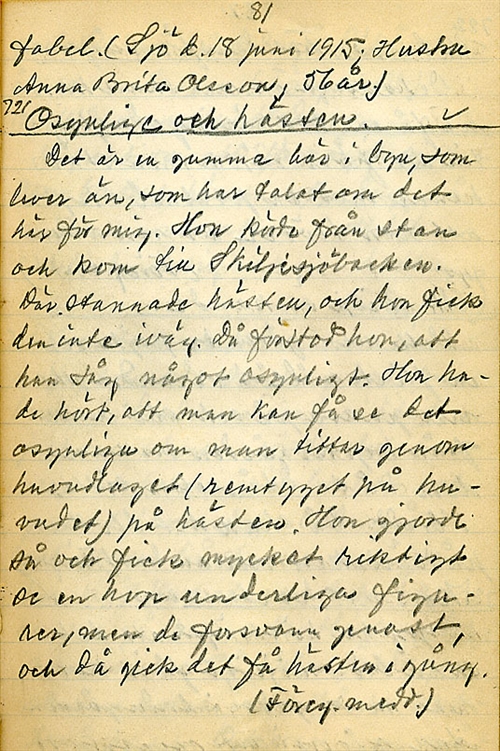 81
fabel. (Sjö d. 18 juni 1915; Hustru
Anna Brita Olsson, 56 år.)
721
Osynlige och hästen. ✓
Det är en gumma här i byn, som
lever än, som har talat om det
här för mig. Hon körde från stan
och kom till Skiljesjöbacken.
Där stannade hästen, och hon fick
den inte iväg. Då förstod hon, att
han såg något osynligt. Hon ha-
de hört, att man kan få se det
osynliga om man tittar genom
huvudlaget (remtyget på hu-
vudet) på hästen. Hon gjorde
så och fick mycket riktigt
se en hop underliga figu-
rer, men de försvann genast,
och då gick det få hästen i gång.
(Föreg. medd.)